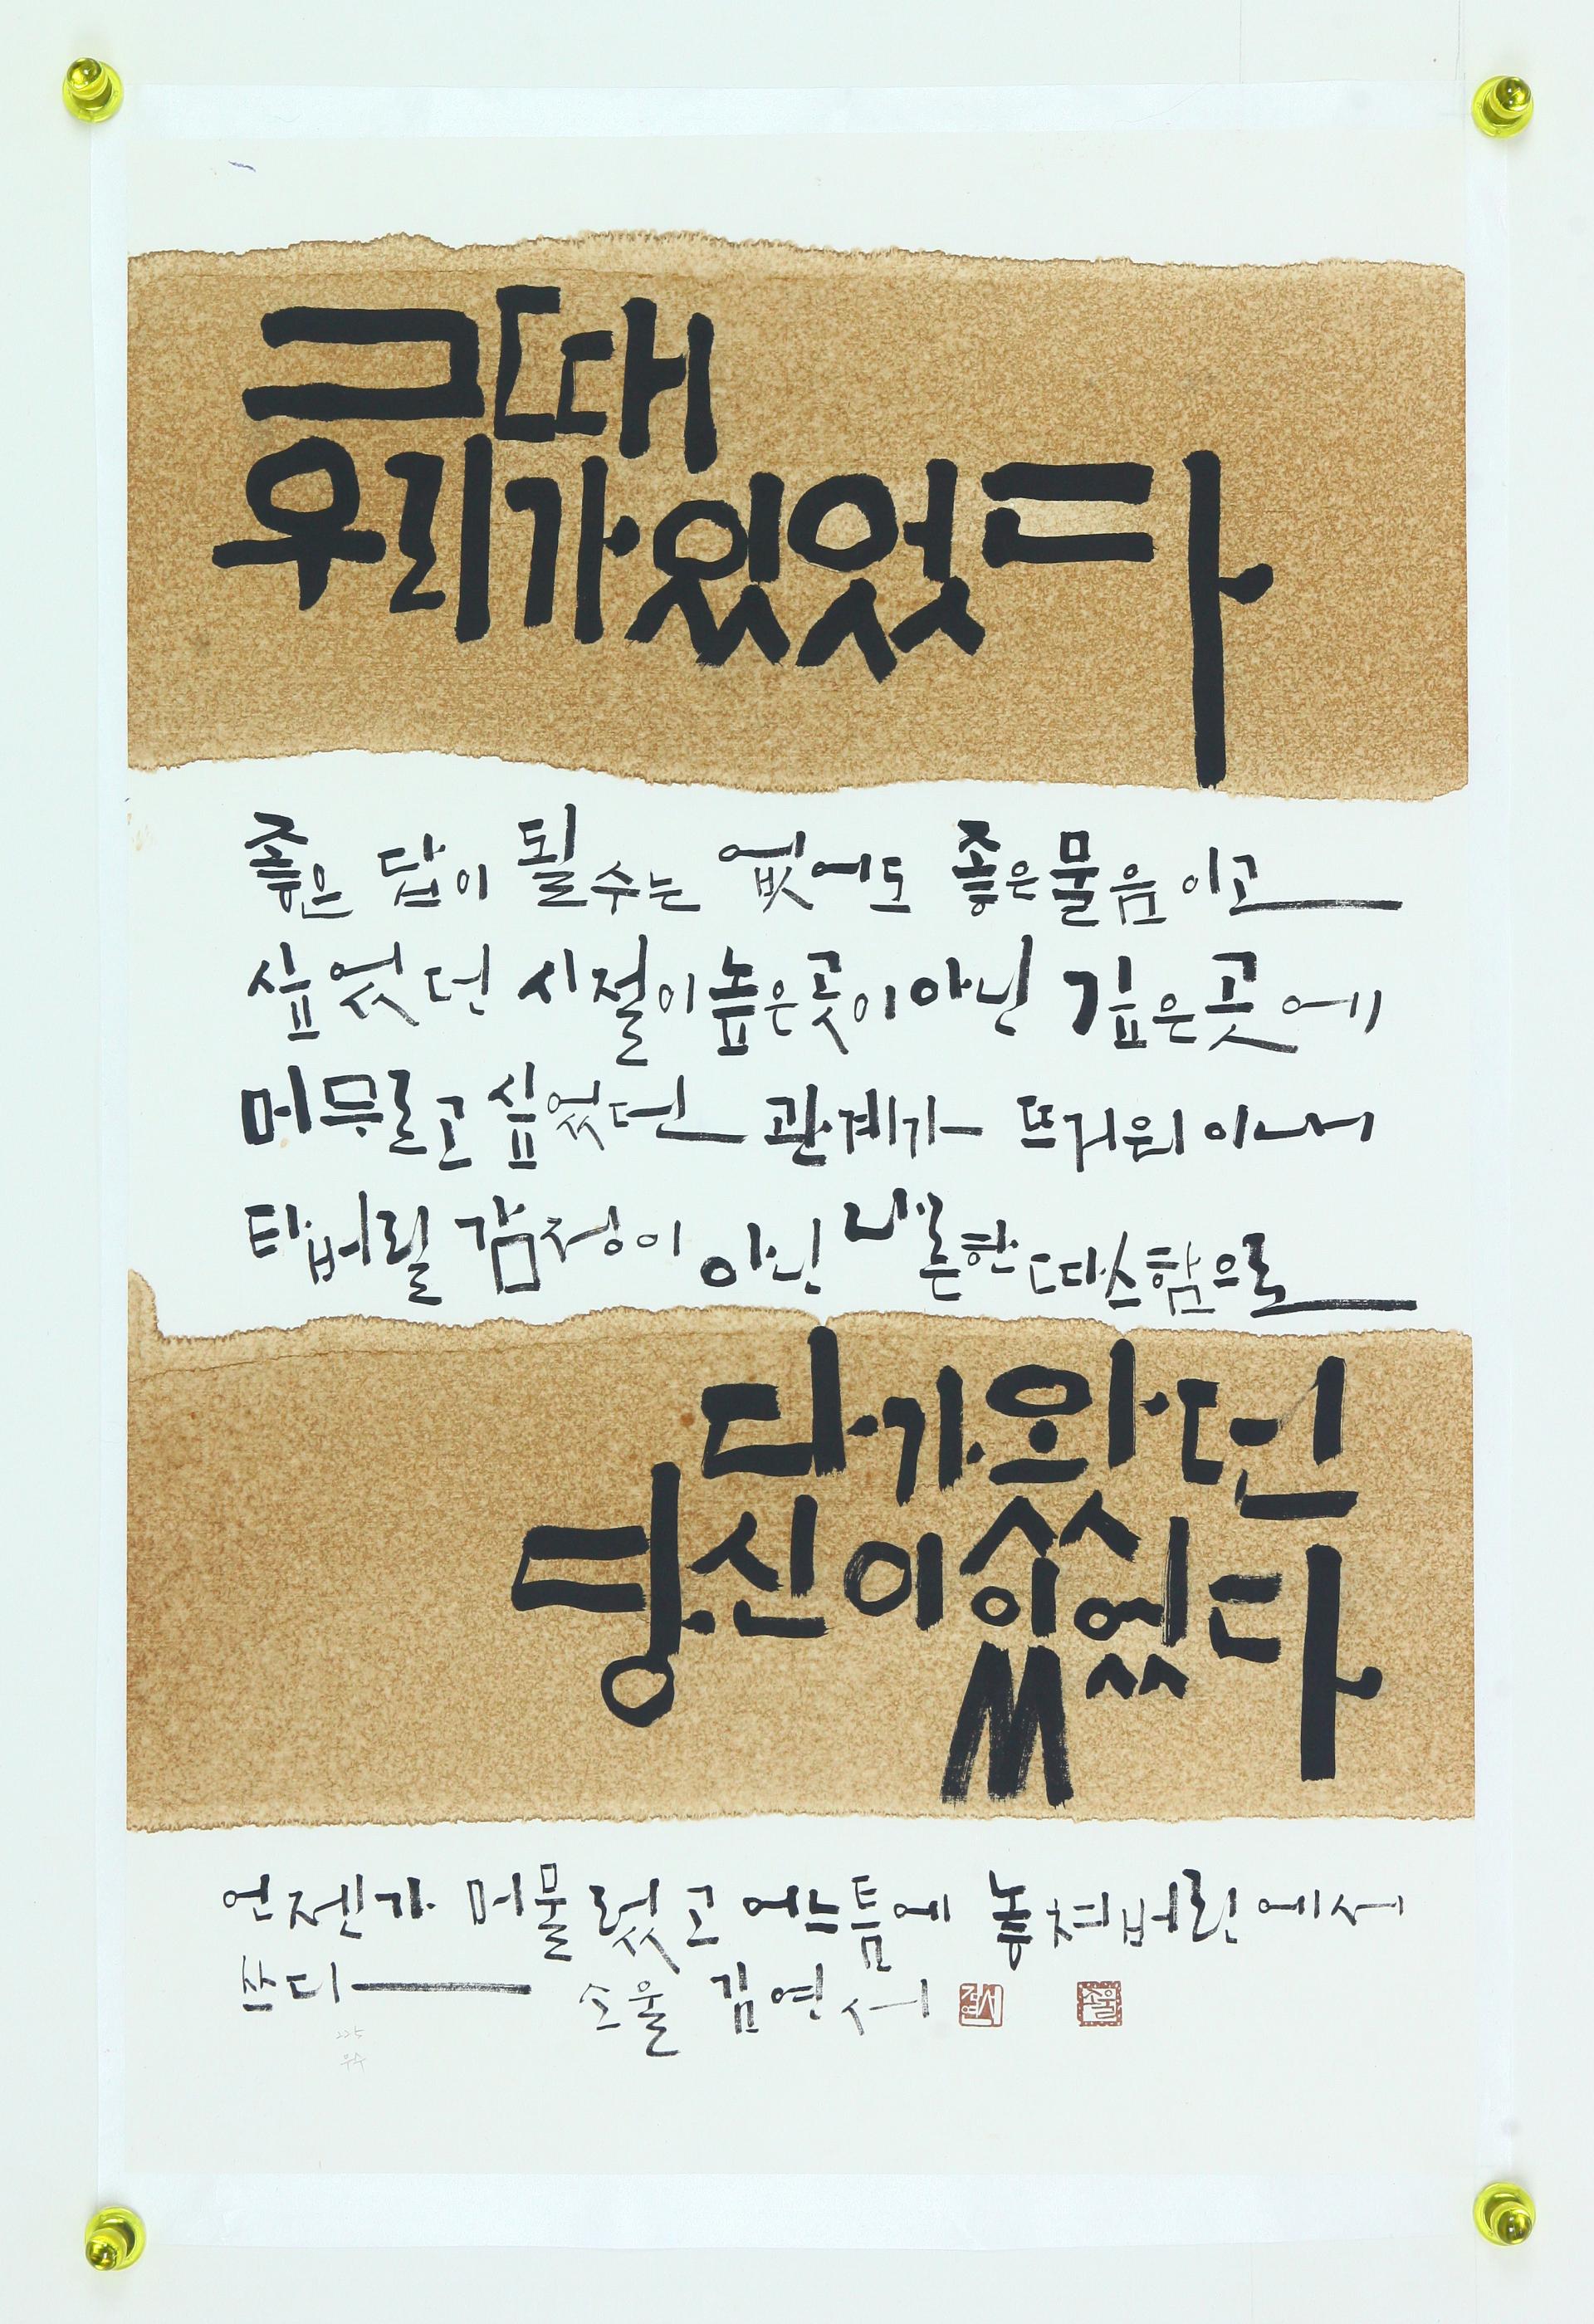 그때
우리가 있었다
좋은 답이 될 수는 없어도 좋은 물음이고
싶었던 시절이 높은 곳이 아닌 깊은 곳에
머무르고 싶었던 관계가 뜨거워 이내
타버릴 감정이 아닌 나른한 따스함으로
다가왔던
당신이 있었다
언젠가 머물렀고 어느 틈에 놓쳐버린 에서
쓰다
소울 김연서
225
우수